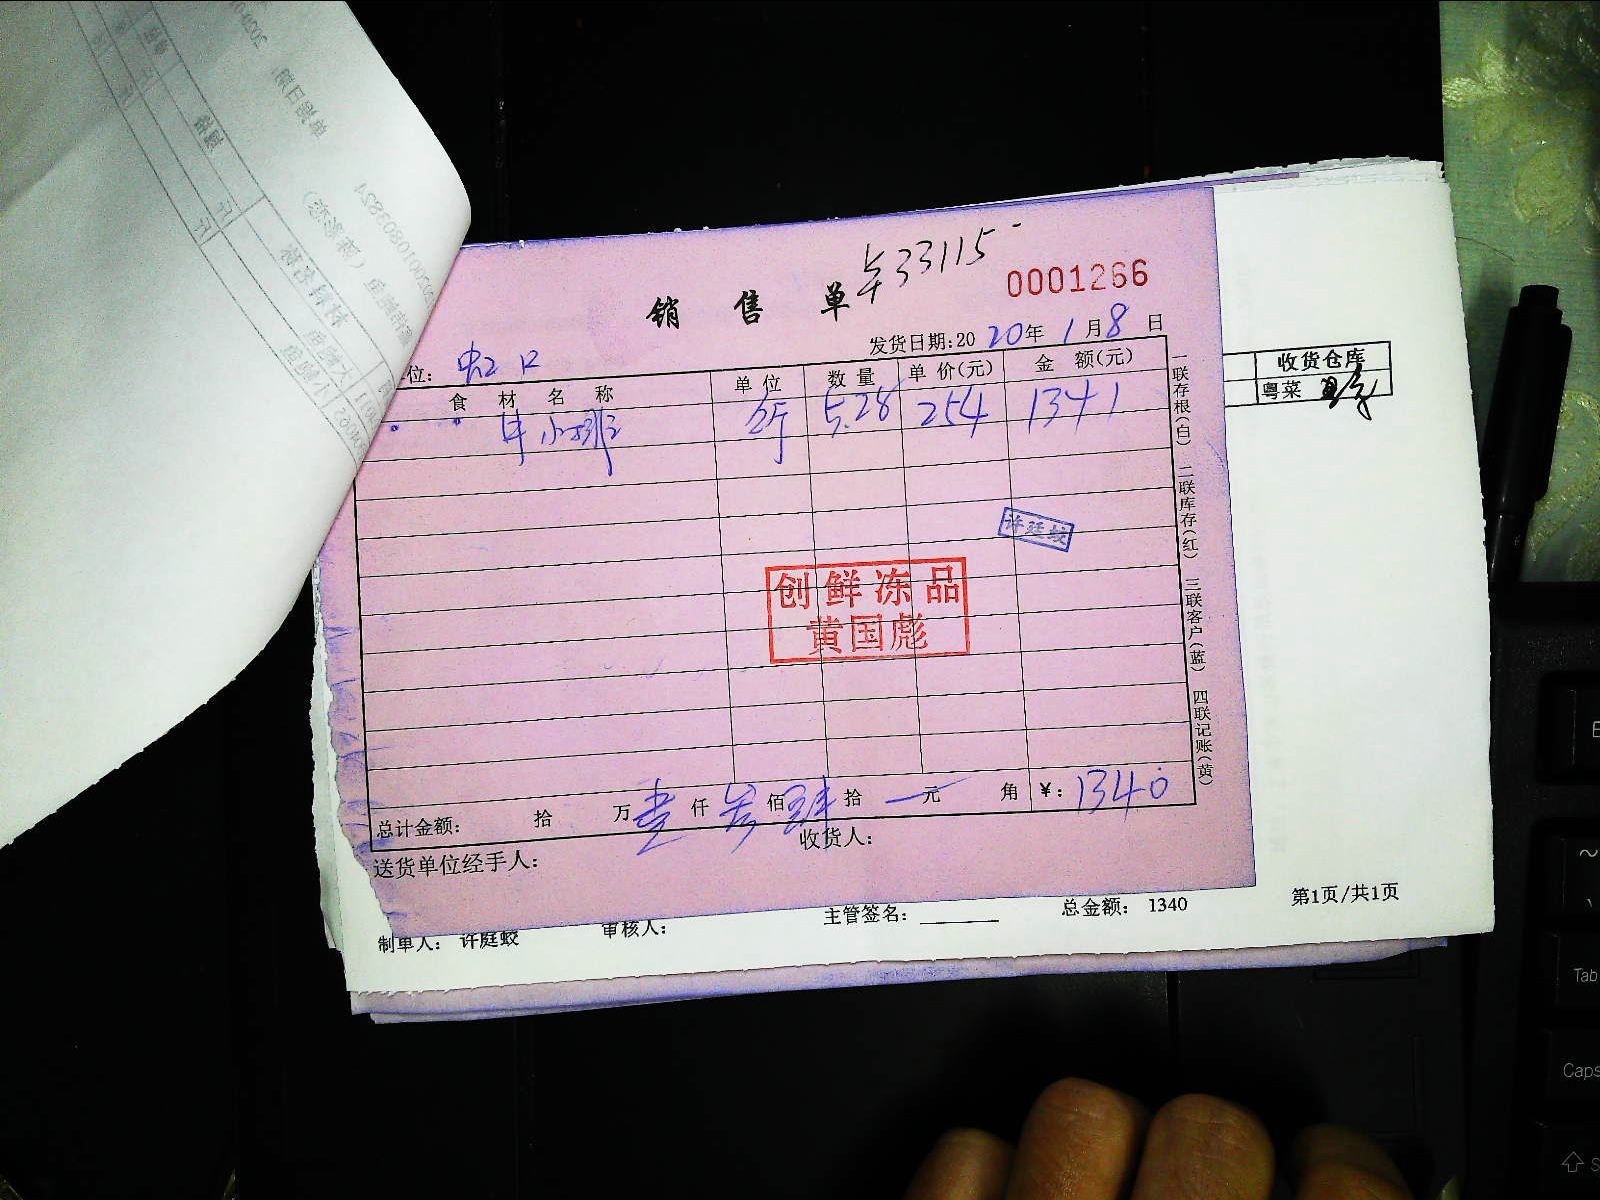 销售单
33115
0001266
发货日期:2020年1月8日
位: 虹口
食材名称 单位 数量 单价(元) 金额(元)
牛小排 斤 5.28 254 1341
许廷蛟
创鲜冻品
黄国彪
总计金额: 拾 万壹仟叁佰肆拾一元 角 ¥: 1340
送货单位经手人: 收货人:
一联存根(白) 二联库存(红) 三联客户(蓝) 四联记账(黄)
收货仓库
粤菜
制单人: 许庭蛟 审核人: 主管签名: 总金额: 1340 第1页/共1页
Tab
Caps